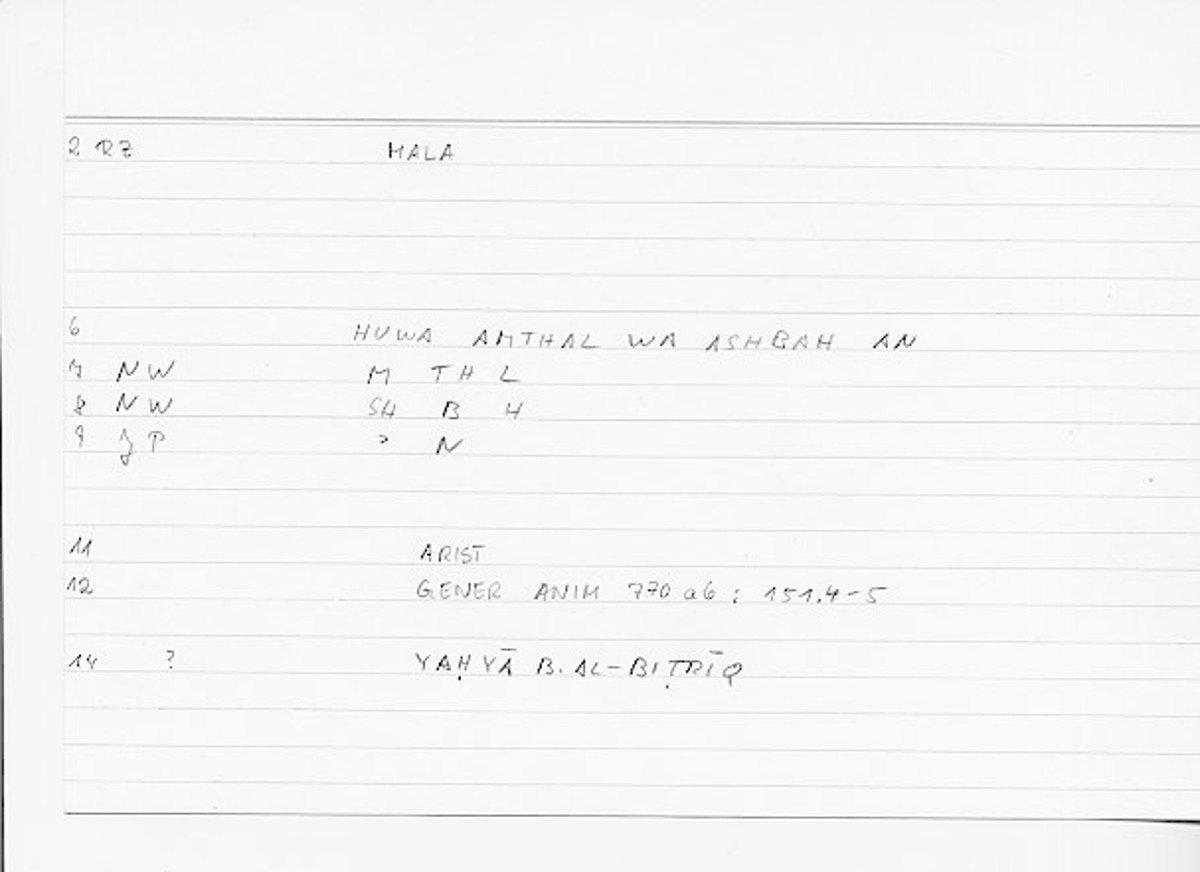 2 RZ MALA
6 HUWA AMTHAL WA ASHBAH AN
7 NW M TH L
8 NW SH B H
9 JP ʾ N
11 ARIST
12 GENER ANIM 770 a6 ; 151.4-5
14 ? YAḤYĀ B. AL-BIṬRĪQ